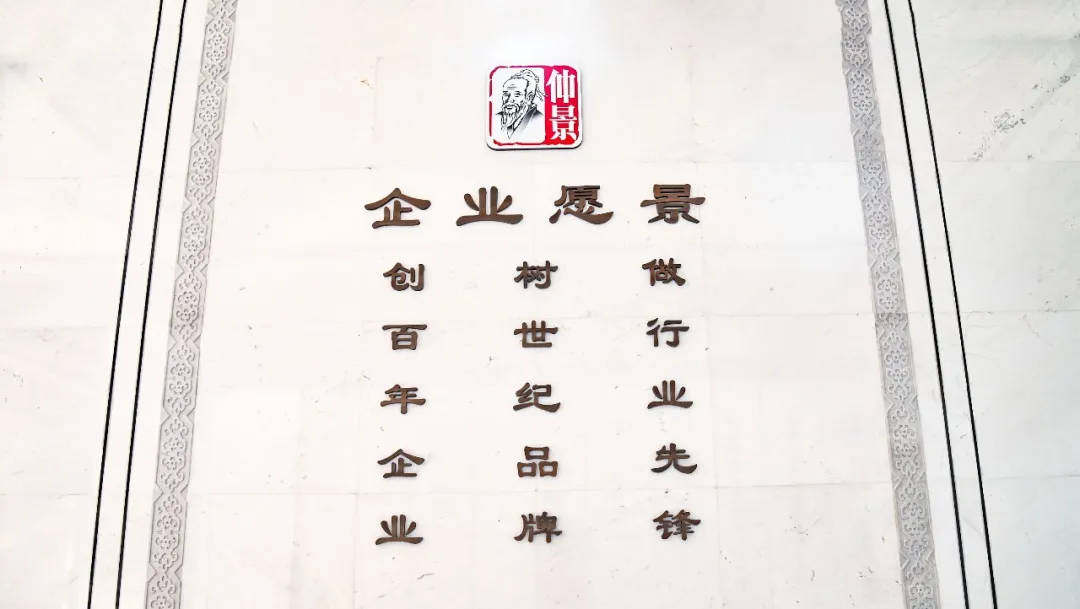 仲景
企业愿景
做行业先锋
树世纪品牌
创百年企业